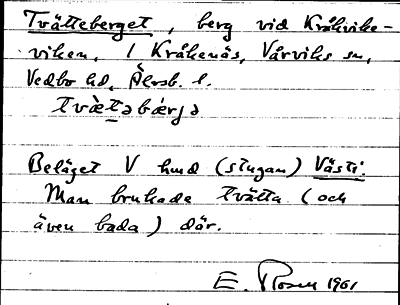 Tvätteberget, berg vid Kråkviks-
viken, 1 Kråkenäs, Vårviks sn,
Vedbo hd, Älvsb. l.
tvæ̀təbærjə
Beläget V hmd (stugan) Västi.
Man brukade tvätta (och
även bada) där.
E. Rosen 1961